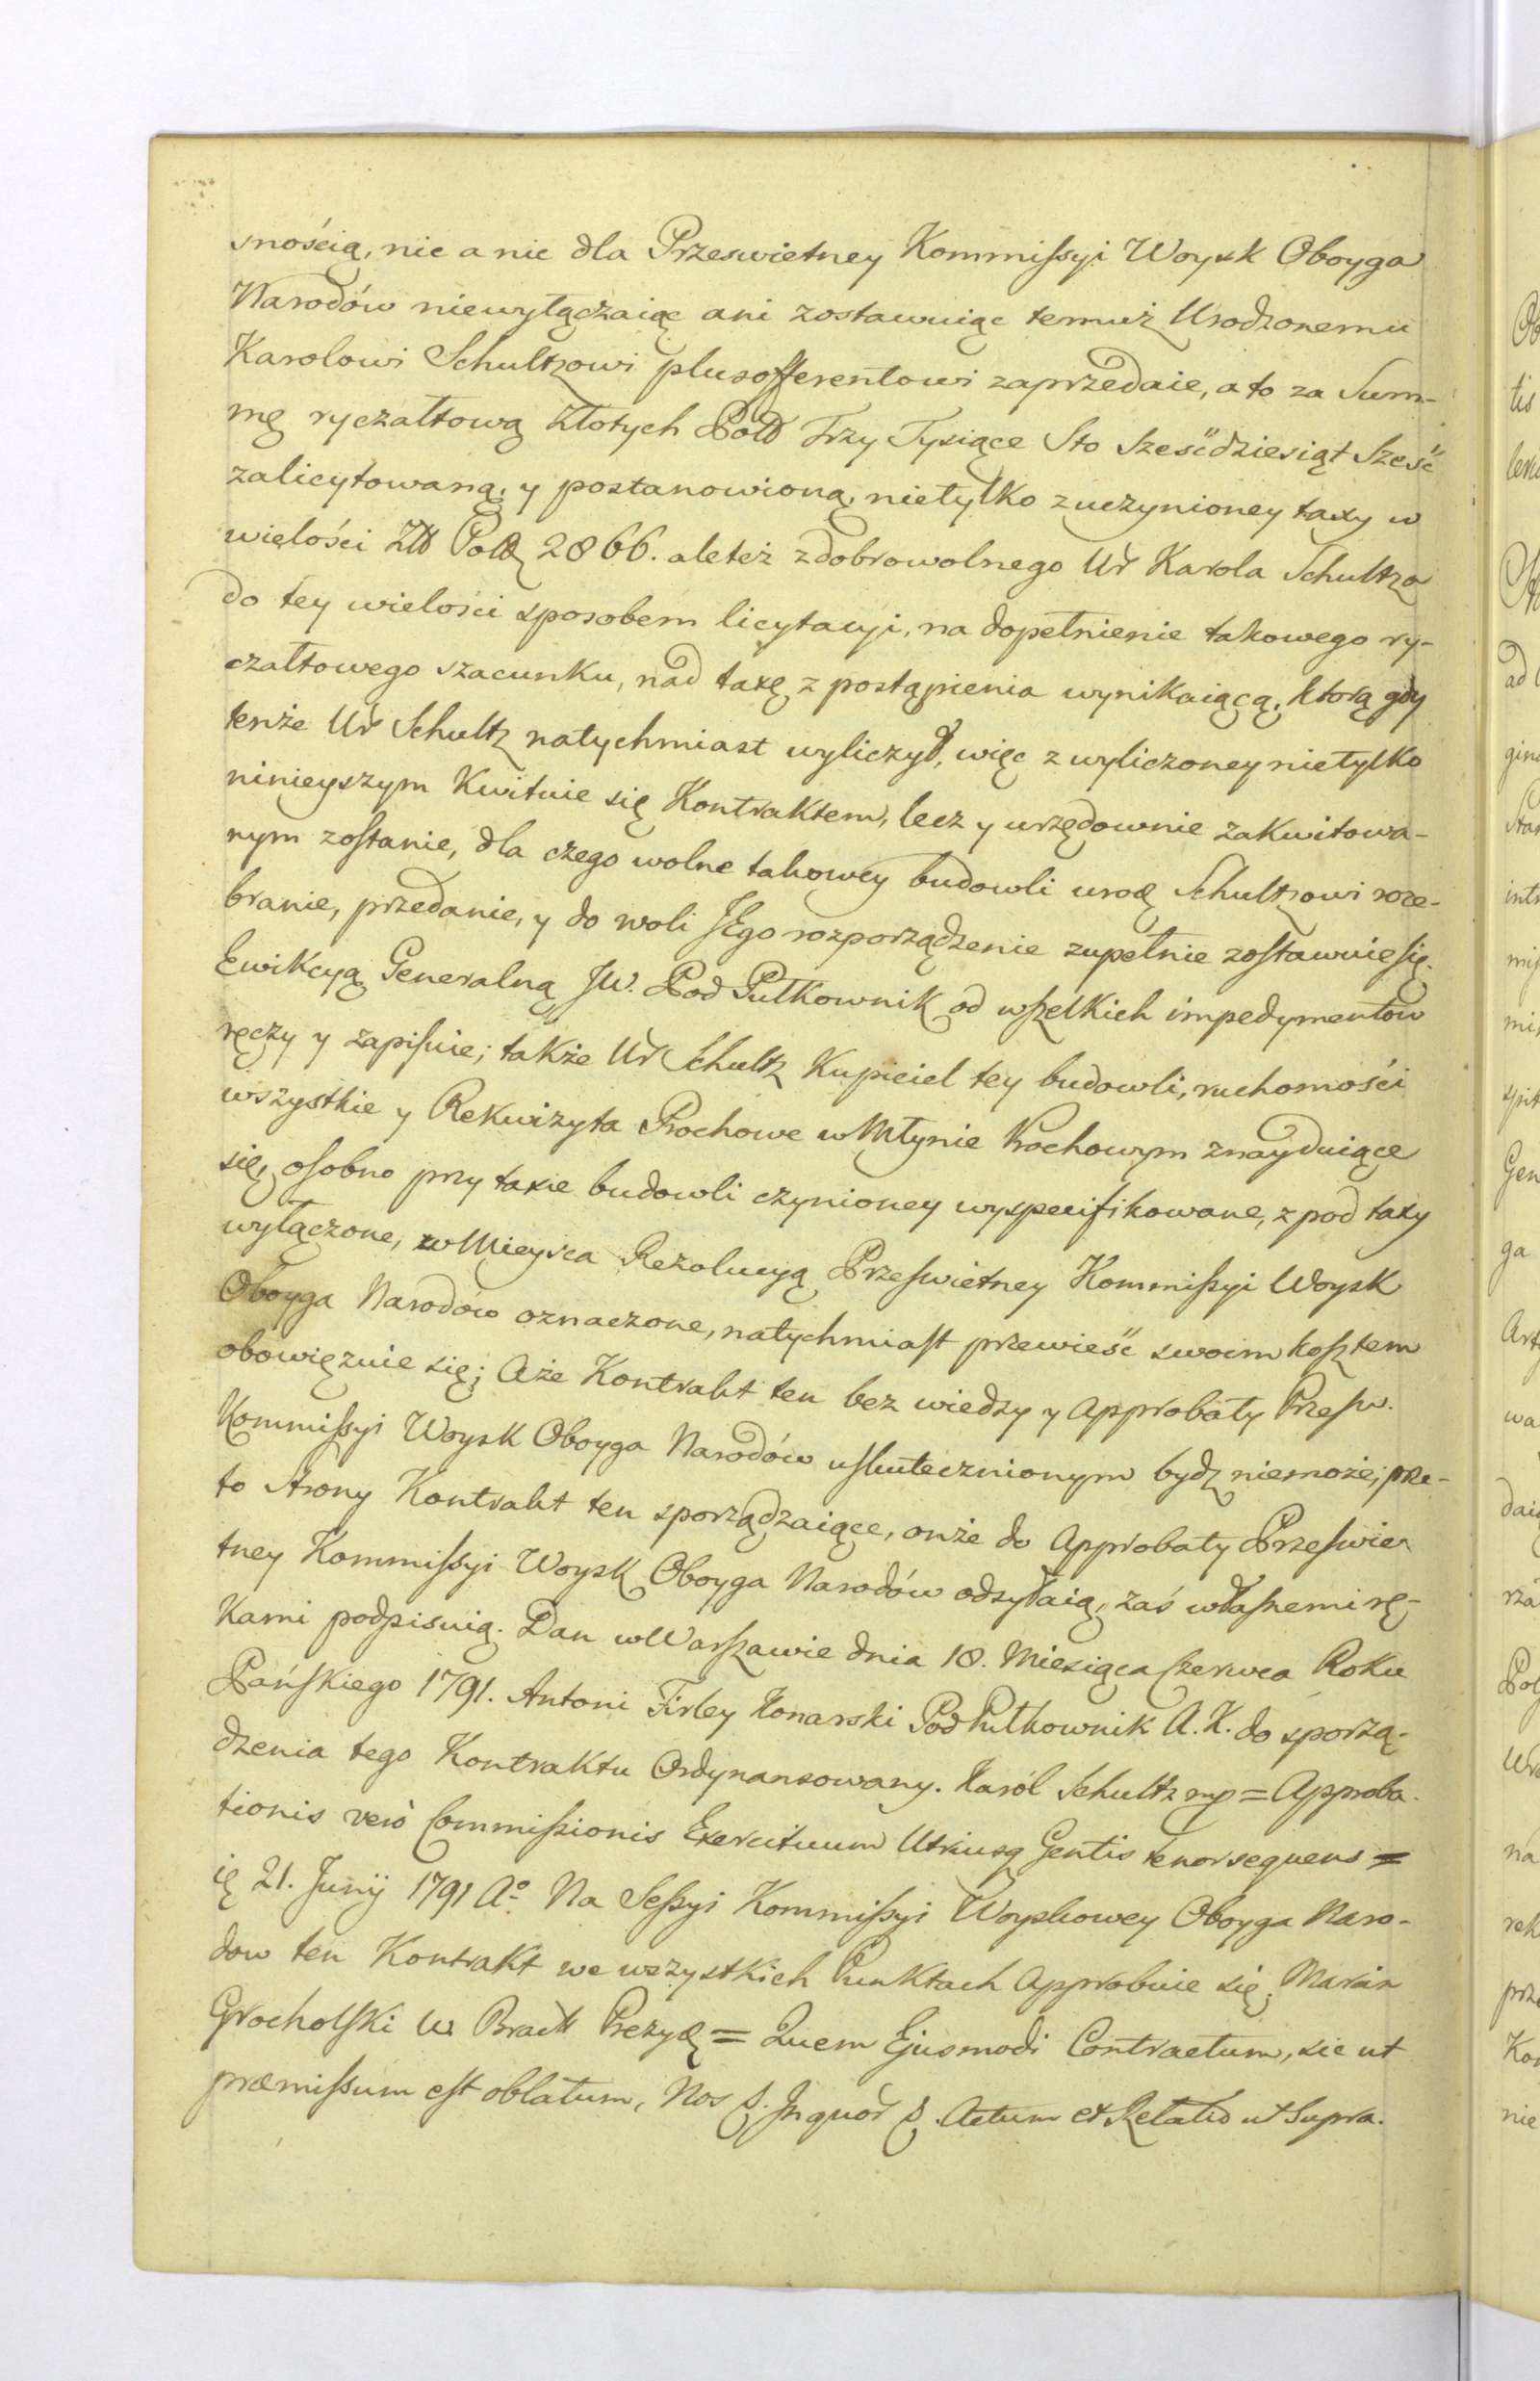 snością, nic a nic dla Przeswietney Kommissyi Woysk Oboyga
Narodów niewyłączaiąc ani zostawuiąc temuż Urodzonemu
Karolowi Schultzowi plusofferentowi zaprzedaie, a to za Sum-
mę ryczałtową Złotych Pold Trzy Tysiące Sto Sześćdziesiąt Sześć
zalicytowaną, y postanowioną, nietylko z uczynioney taxy w
wielości Złł Poll 2866. aleteż z dobrowolnego Ur Karola Schultza
do tey wielości sposobem licytacyi, na dopełnienie takowego ry-
czałtowego szacunku, nad taxę z postąpienia wynikaiącą, którą gdy
tenże Ur Schultz natychmiast wyliczył, więc z wyliczoney nietylko
ninieyszym Kwituie się Kontraktem, lecz y urzędownie zakwitowa-
nym zostanie, dla czego wolne takowey budowli urod Schultzowi roze-
branie, przedanie, y do woli JEgo rozporządzenie zupełnie zostawuie się.
Ewikcyą Generalną JW. Pod Pułkownik od wszelkich impedymentow
ręczy y zapisuie; także Ur Schultz Kupiciel tey budowli, ruchomości
wszystkie y Rekwizyta Prochowe w Młynie Prochowym znayduiące
się, osobno przy taxie budowli czynioney wyspecifikowane, z pod taxy
wyłączone, w Mieysca Rezolucyą Przeswietney Kommissyi Woysk
Oboyga Narodów oznaczone, natychmiast przewieść swoim kosztem
obowięzuie się; Aże Kontrakt ten bez wiedzy y Approbaty Przesw.
Kommissyi Woysk Oboyga Narodów uskutecznionym bydz niemoże; prze-
to Strony Kontrakt ten sporządzaiące, onże do Approbaty Przeswie-
tney Kommissyi Woysk Oboyga Narodów odsyłaią, zaś własnemi rę-
kami podpisuią. Dan w Warszawie dnia 18. Miesiąca Czerwca Roku
Pańskiego 1791. Antoni Firley Konarski Pod Pułkownik A. K. do sporzą-
dzenia tego Kontraktu Ordynansowany. Karól Schultz mp = Approba-
tionis verò Commissionis Exercituum Utriusq Gentis tenor sequens =
21. Junij 1791 Aº. Na Sessyi Kommissyi Woyskowey Oboyga Naro-
dow ten Kontrakt we wszystkich Punktach Approbuie się. Marcin
Grocholski W. Prezyd = Quem Ejusmodi Contractum, sic ut
præmissum est oblatum, Nos Actum et Relatio ut Supra.